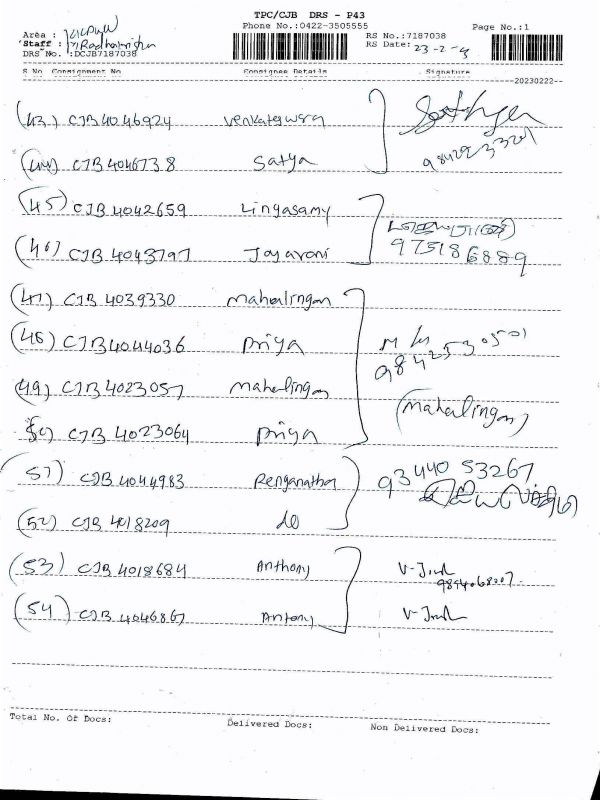 TPC/CJB DRS - P43
Phone No.:0422-3505555
Page No.:1
Area :
RS No.:7187038
Staff : Radhakrishn
RS Date: 23-2-
DRS No. :DCJB7187038
S No Consignment No Consignee Details Signature
--20230222--
(43) CJB4046924 Venkateswara
(44) CJB 4046738 Satya
9842923320
(45) CJB 4042659 Lingasamy
(46) CJB 4043797 Jayavani
975186889
(47) CJB 4039330 Mahalingam
(48) CJB4044036 Priya
984253 0501
(49) CJB 4023057 Mahalingam
(Mahalingam)
50) CJB 4023064 Priya
(51) CJB 4044983 Renganathan
93440 53267
(52) CJB 4018209 do
(53) CJB 4018684 Anthony
(54) CJB 4046867 Antony
Total No. Of Docs: Delivered Docs: Non Delivered Docs: